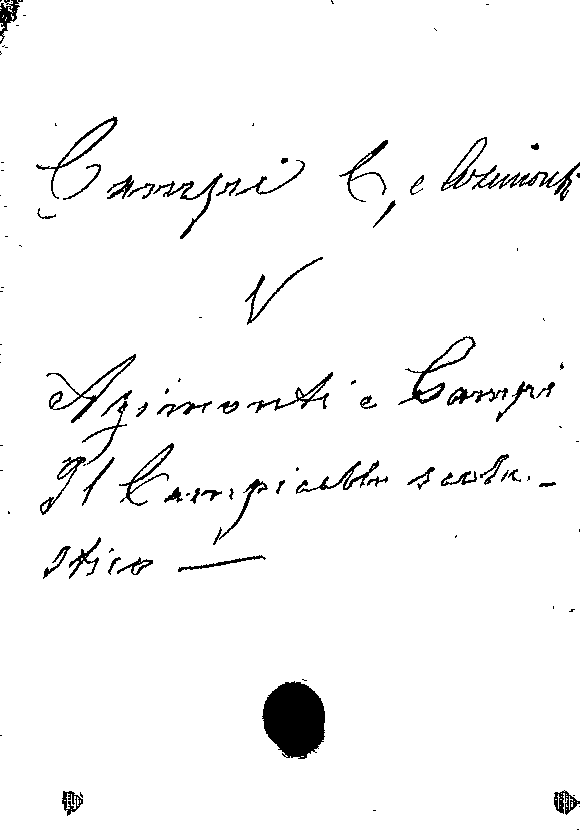 Campi C, e Azimonti
V
Azimonti e Campi
Il Campicello scola-
stico —